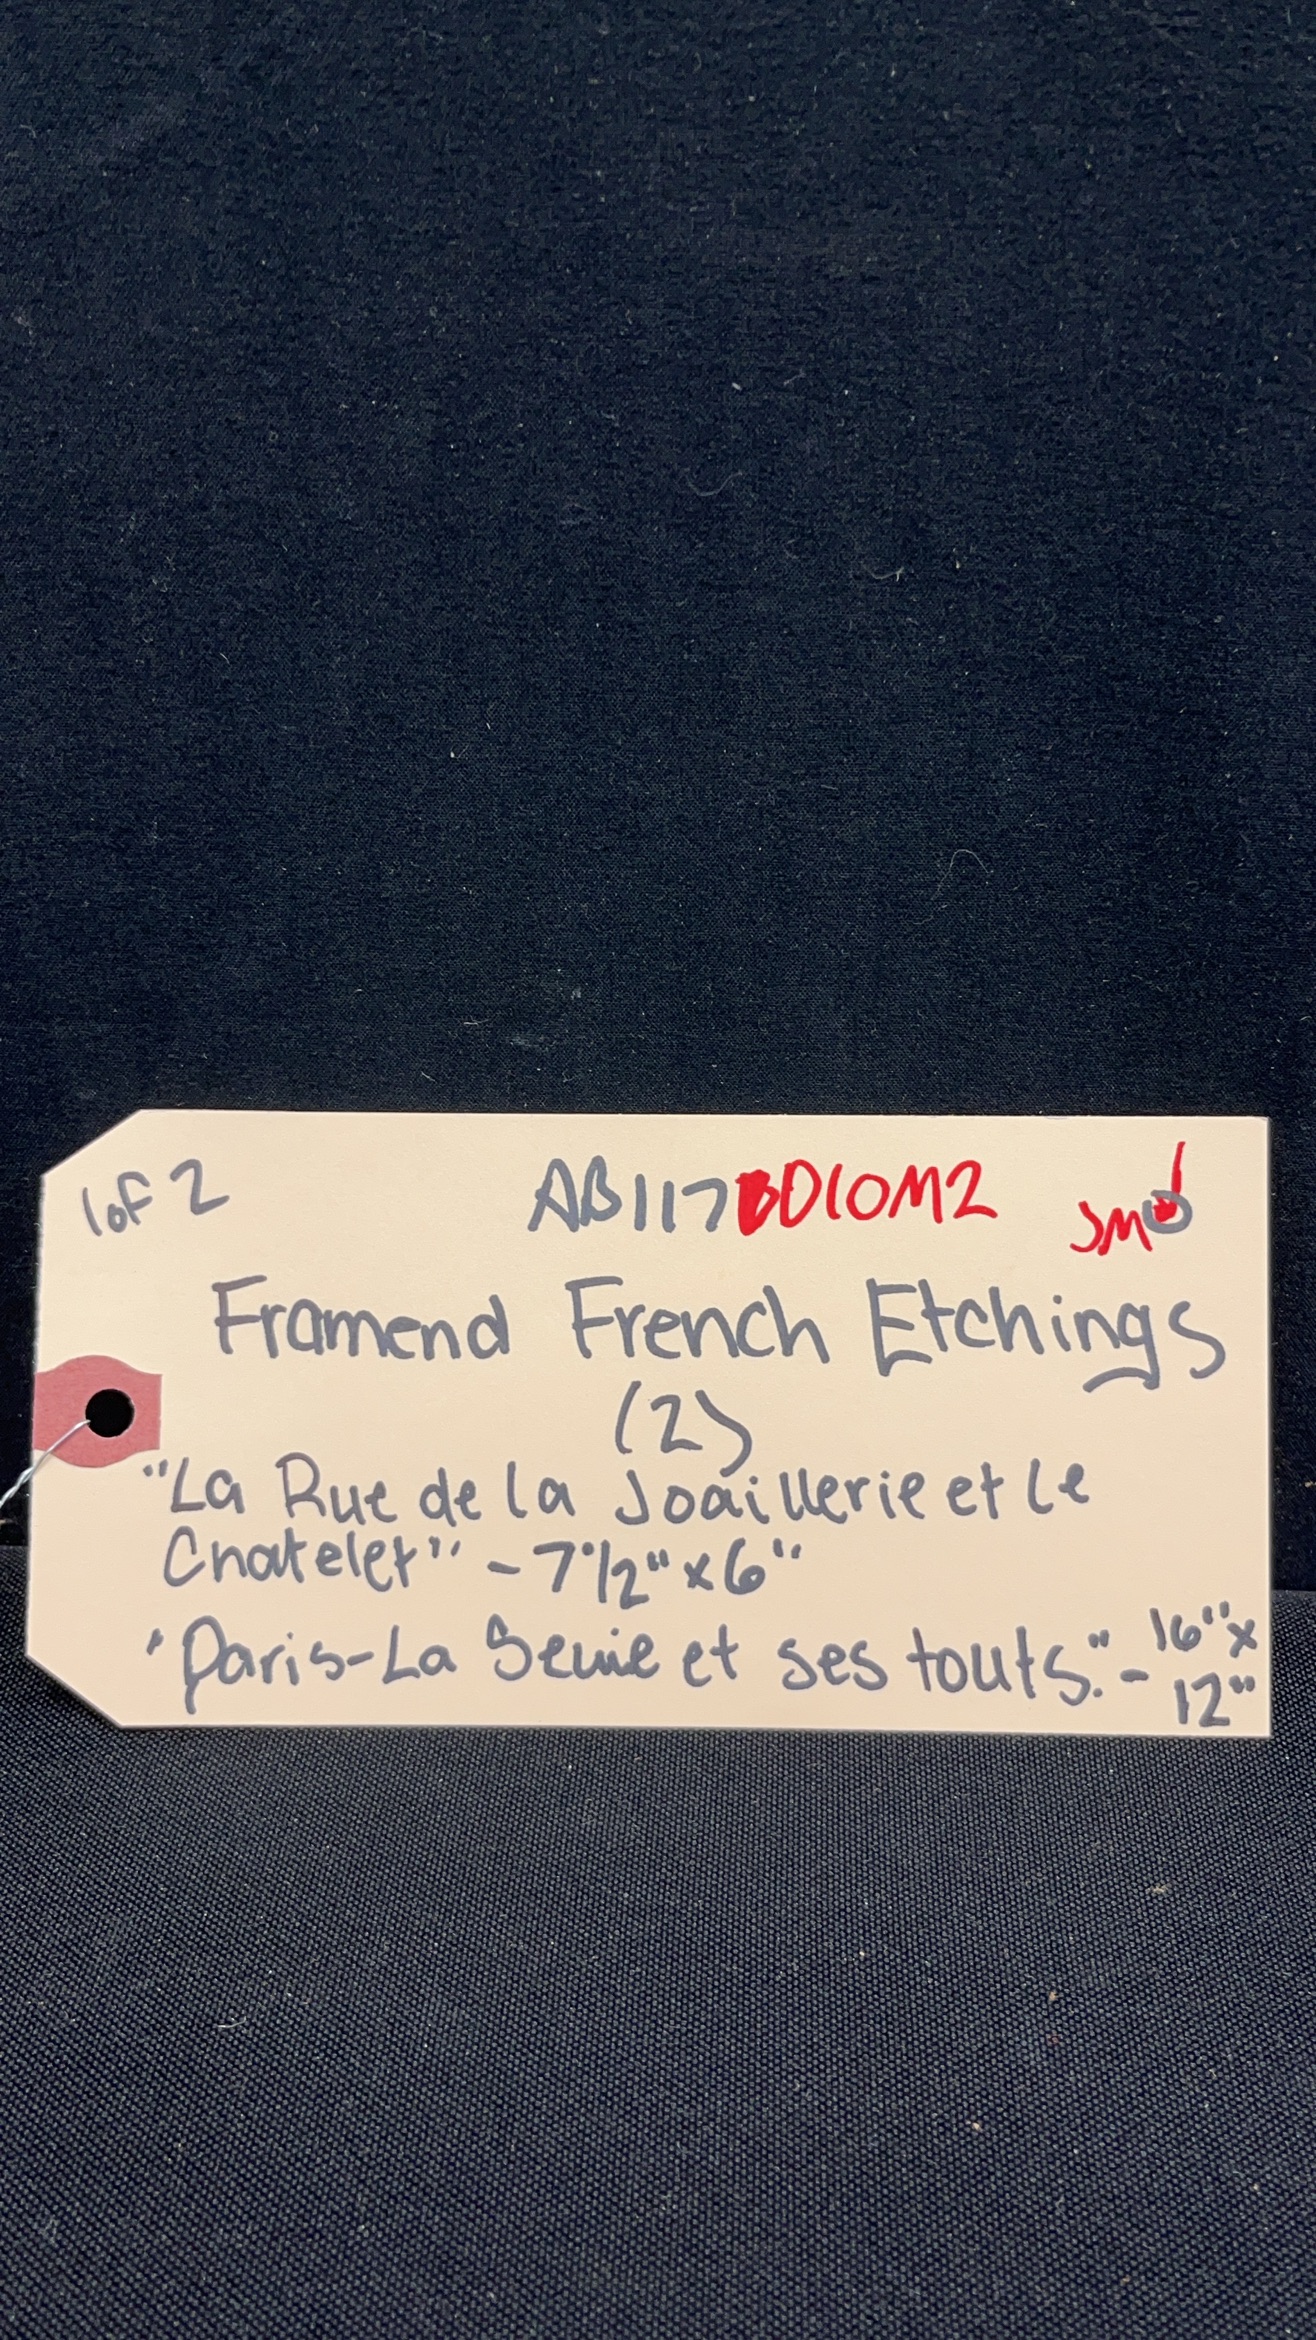 1 of 2
AB117 D10M2 JM
Framend French Etchings
(2)
"La Rue de la Joaillerie et Le
Chatelet" - 7 1/2" x 6"
"Paris-La Seuie et ses touts." - 16" x
12"